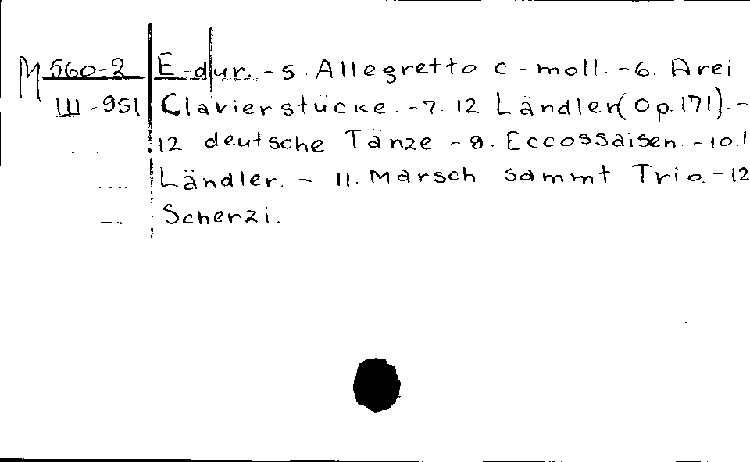 М 560-2 E-dur. - 5. Allegretto c-moll. - 6. Arei
Ш-951 Clavierstücke. - 7. 12 Ländler (Op. 171). -
12 deutsche Tänze - 9. Eccossaisen. - 10. 1
Ländler. - 11. Marsch sammt Trio. - 12
Scherzi.